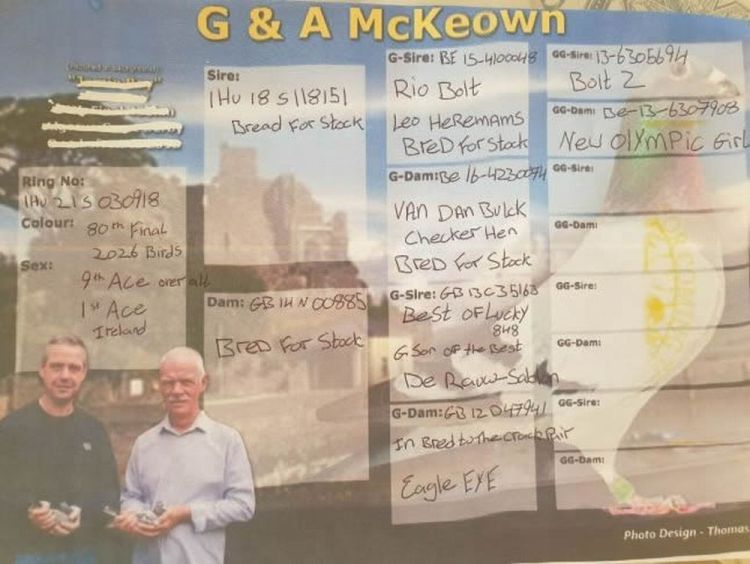 G & A McKeown
Ring No:
IHU 21 S 030918
Colour: 80th Final
2026 Birds
Sex:
9th Ace over all
1st Ace
Ireland
Sire:
IHU 18 S 118151
Bread For Stock
Dam: GB 14 N 00885
Bred For Stock
G-Sire: BE 15-4100048
Rio Bolt
Leo Heremams
Bred For Stock
G-Dam: Be 16-4230074
VAN Dan Bulck
Checker Hen
Bred For Stock
G-Sire: GB 13 C 35163
Best OF Lucky
848
G Son of the Best
De Rauw-Sablon
G-Dam: GB 12 D 47941
In Bred to the Crack Pair
Eagle EYE
GG-Sire: 13-6305694
Bolt 2
GG-Dam: Be-13-6307908
New Olympic Girl
GG-Sire:
GG-Dam:
GG-Sire:
GG-Dam:
GG-Sire:
GG-Dam:
Photo Design - Thomas